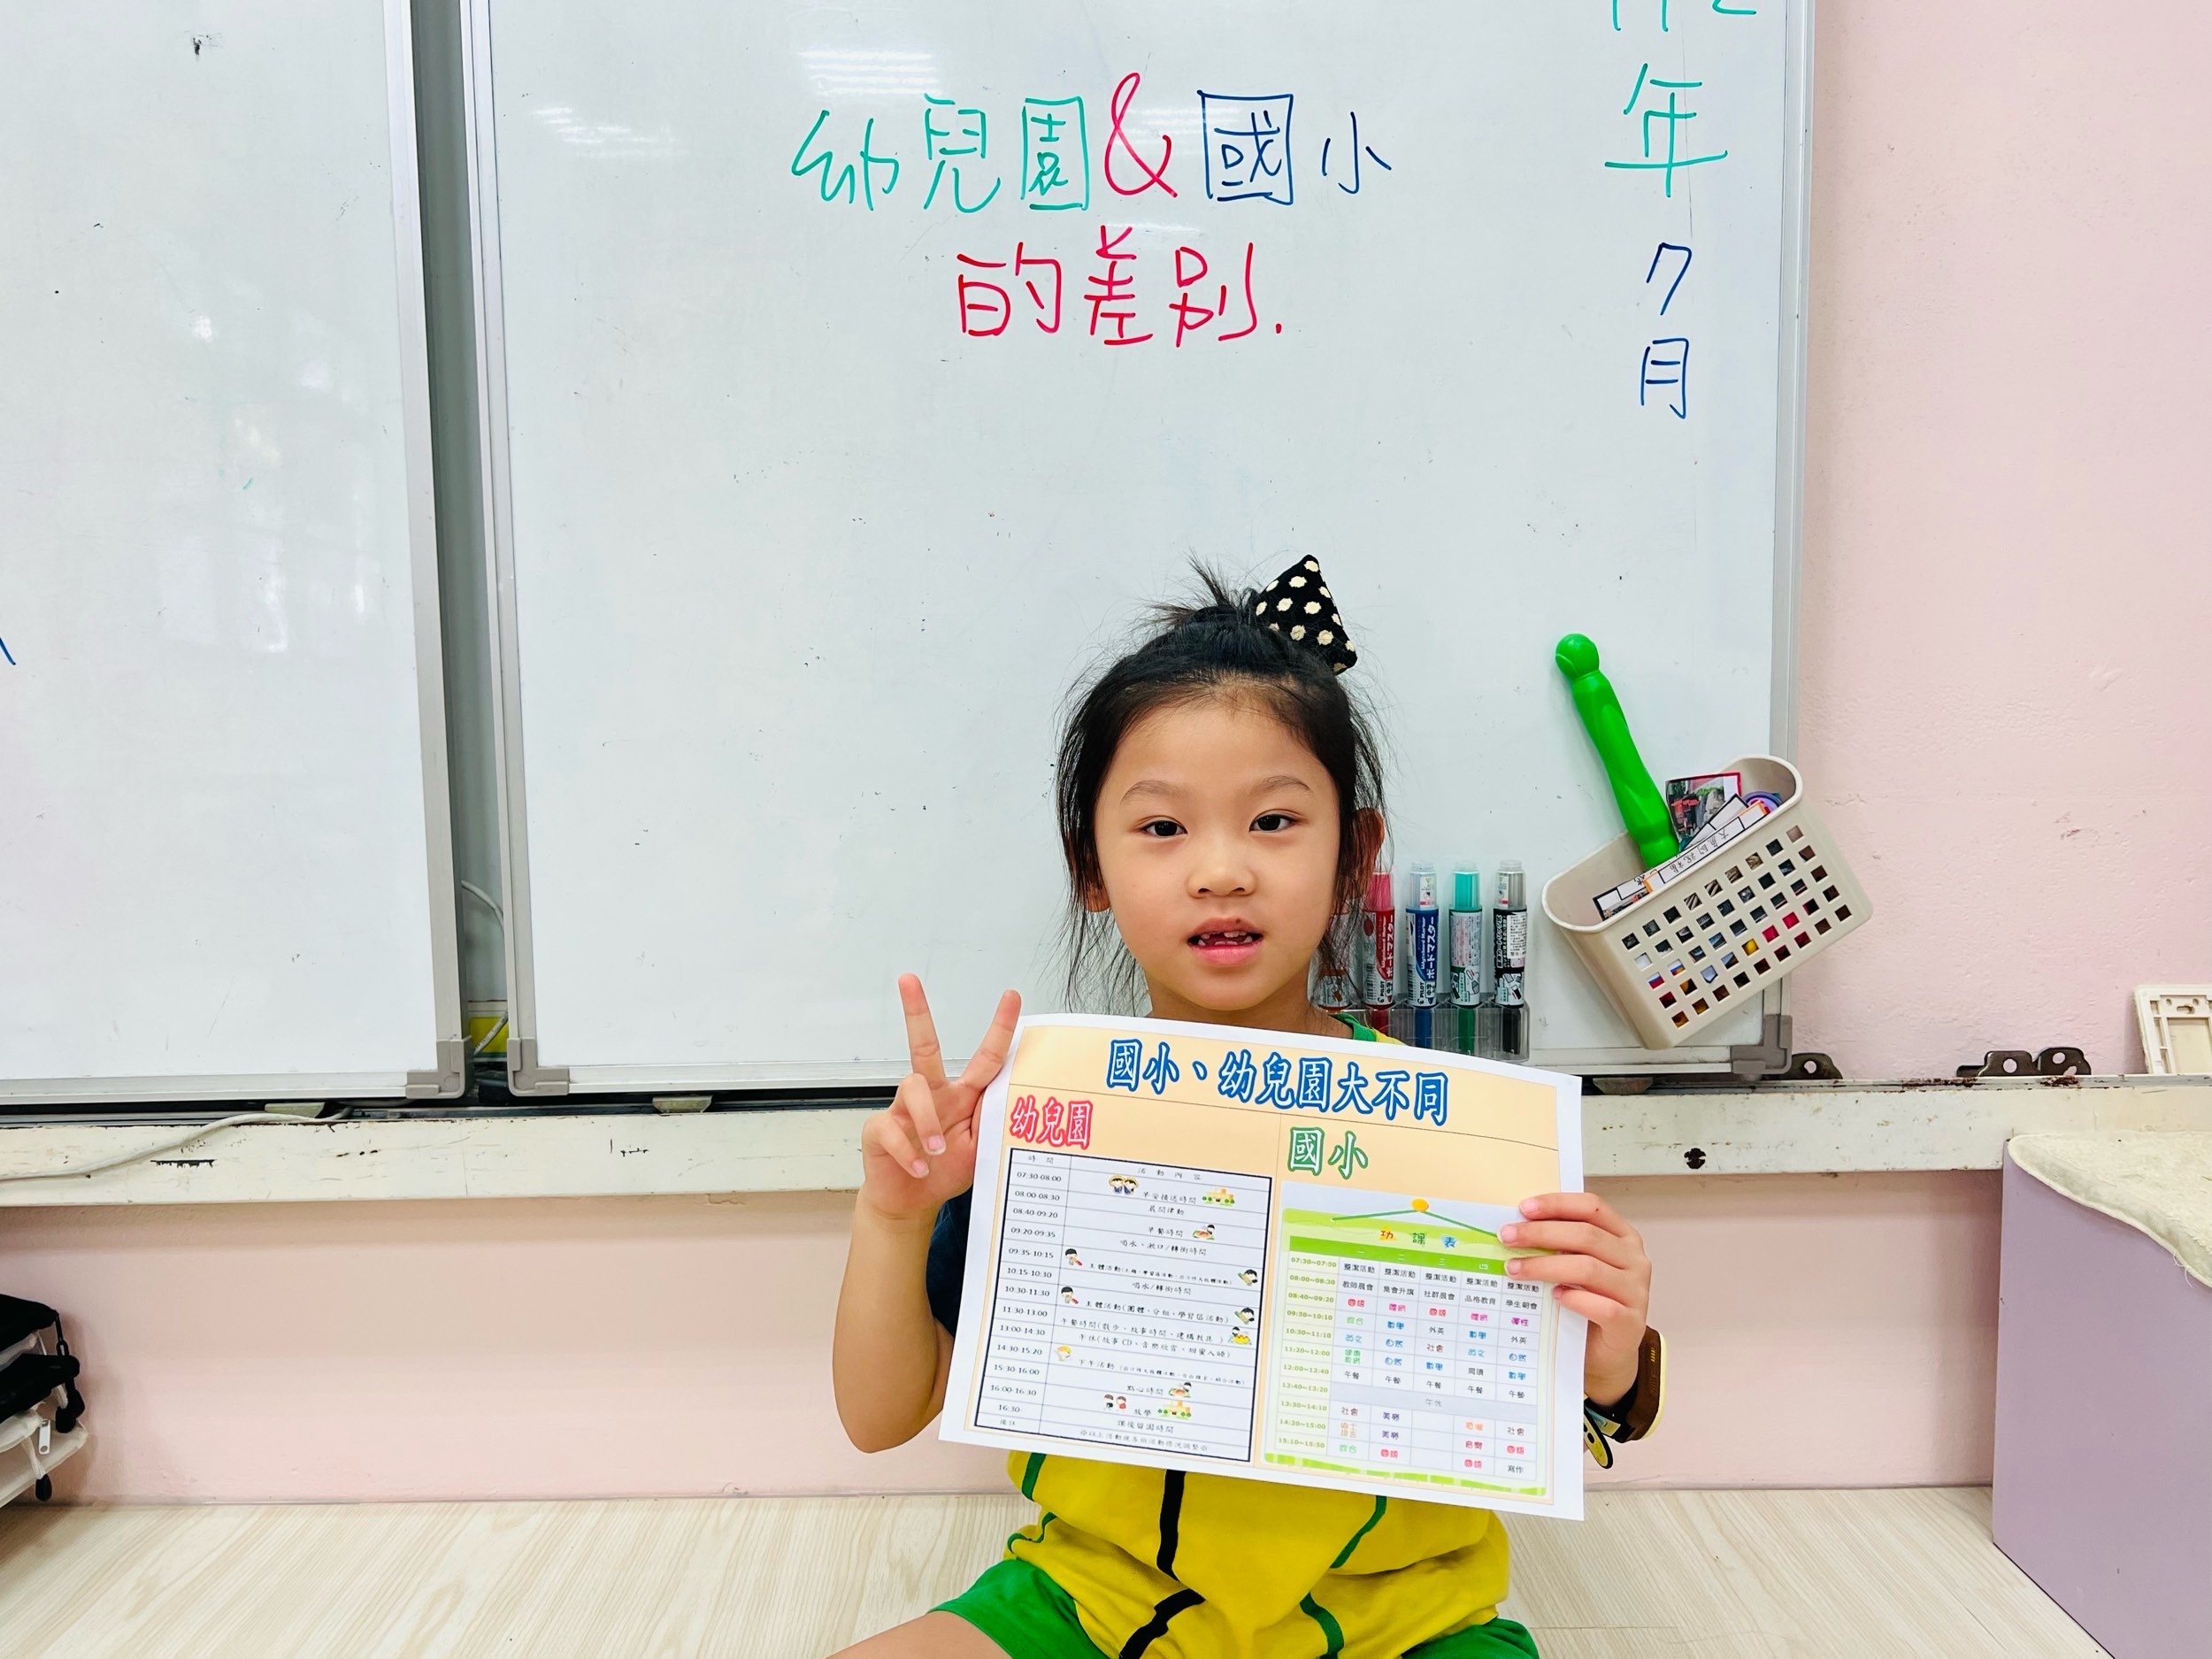 幼兒園&國小
的差別.
年
7
月
國小、幼兒園大不同
幼兒園
時間 活動內容
07:30-08:00 早安接送時間
08:00-08:30 晨間律動
08:40-09:20 早餐時間
09:20-09:35 喝水、漱口/轉銜時間
09:35-10:15
10:15-10:30 喝水/轉銜時間
10:30-11:30 主體活動(團體、分組、學習區活動)
11:30-13:00 午餐時間(散步、故事時間、建構教具)
13:00-14:30
14:30-15:20 下午活動
15:30-16:00 點心時間
16:00-16:30 放學
16:30 課後留園時間
備註
國小
功課表
一 二 三 四
07:30~07:50 整潔活動 整潔活動 整潔活動 整潔活動 整潔活動
08:00~08:30 教師晨會 集會升旗 社群晨會 品格教育 學生朝會
08:40~09:20 國語 國語
09:30~10:10 數學 外英 數學 外英
10:30~11:10 社會
11:20~12:00 健康 數學 閱讀 數學
12:00~12:40 午餐 午餐 午餐 午餐 午餐
12:40~13:20 午休
13:30~14:10 社會 美勞 社會
14:20~15:00 美勞 國語
15:10~15:50 國語 國語 寫作
ボードマスター
PILOT